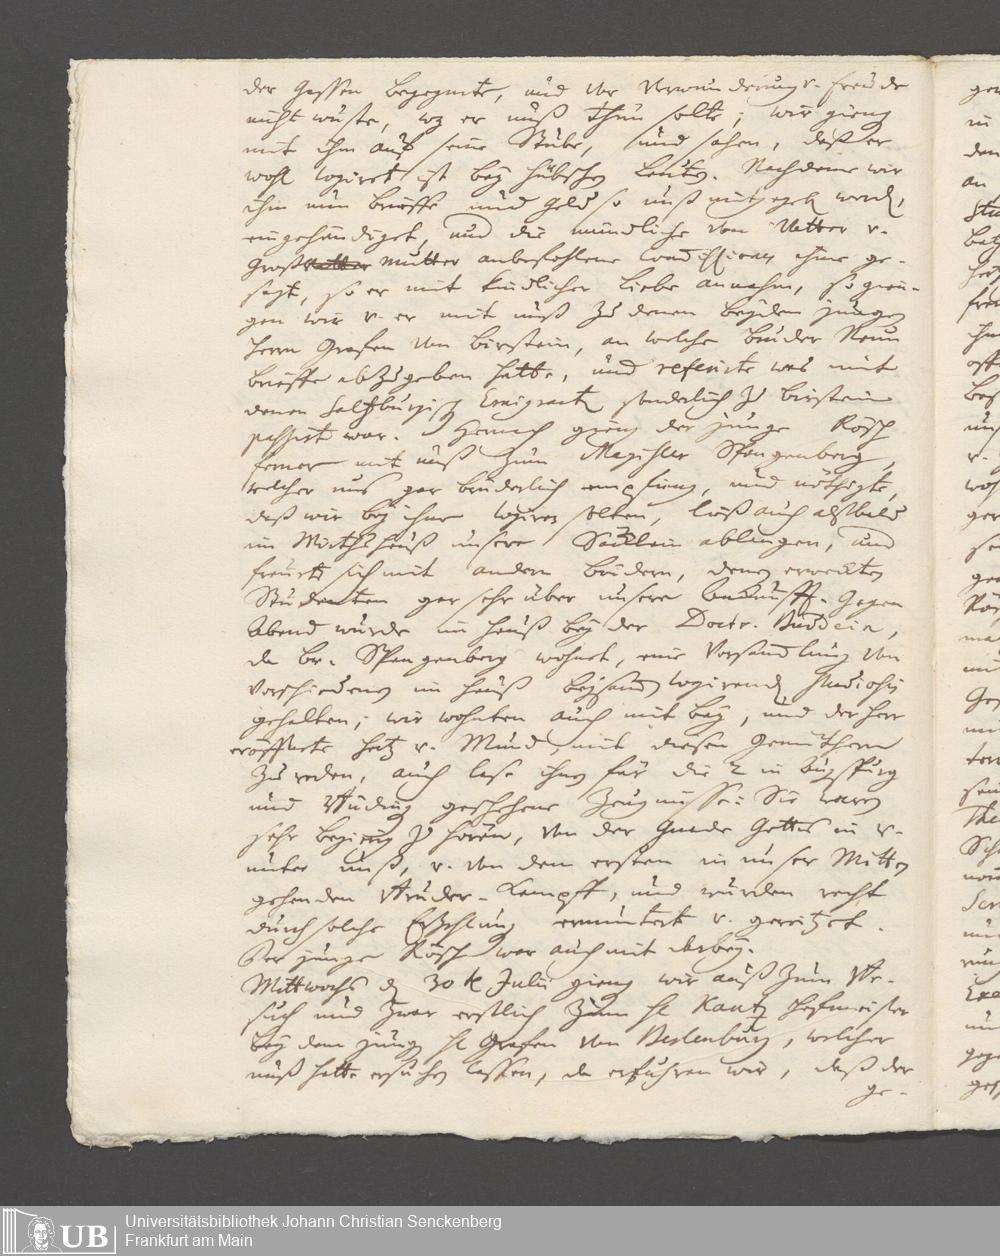 der Gassen begegnete, und vor Verwunderung v. freude
nicht wuste, wz er unß thun solte; wir gieng
mit ihm auf seine Stube, und sahen, daß er
wohl logiret ist bey hübschen Leuten. Nachdeme wir
ihm nun brieffe und Geld so unß mitgegeben worden,
eingehändiget, und die mündliche von Vatter v.
Großmutter anbefohlene Commissionen ihme ge-
sagt, so er mit kindlicher Liebe annahm, so gien-
gen wir v. er mit unß zu denen beyden jungen
Herrn Grafen von Birstein, an welche bruder Neun
brieffe abzugeben hatte, und referirte was mit
denen Saltzburgisch Emigranten sonderlich zu Birstein
passirt war. Hernach gieng der junge Rösch
ferner mit unß zum Magister Spangenberg,
welcher uns gar brüderlich empfieng, und nöthigte,
daß wir bey ihme logiren solten, ließ auch alßbald
im Wirthshauß unsere Säcklein ablangen, und
freute sich mit andern brüdern, denen erweckten
Studenten gar sehr über unsere ankunfft. Gegen
Abend wurde im Hauß bey der Doctr. Buddein,
da br. Spangenberg wohnet, eine Versamlung von
verschiedenen im Hauß beysamen logirenden Studiosis
gehalten; wir wohnten auch mit bey, und der Herr
eröffnete Hertz v. Mund, mit diesen Gemüthern
zu reden, auch lase ihnen für die 2 in Augspurg
und geschehene Zeugnisse: Sie waren
sehr begierig zu hören, von der Gnade Gottes in v.
unter unß, v. von dem ersten in unser Mitten
gehenden bruder-Kampff, und wurden recht
durch solche Erzehlung ermuntert v. gereitzet.
Der junge Rösch war auch mit darbey.
Mittwochs d. 30 t Julii gieng wir auß zum be-
such und zwar erstlich zum H. Kautz Hofmeister
bey dem jungen H. Grafen von Berlenburg, welcher
unß hatte ersuchen lassen, da erfuhren wir, daß der
ge-
Universitätsbibliothek Johann Christian Senckenberg
Frankfurt am Main
UB